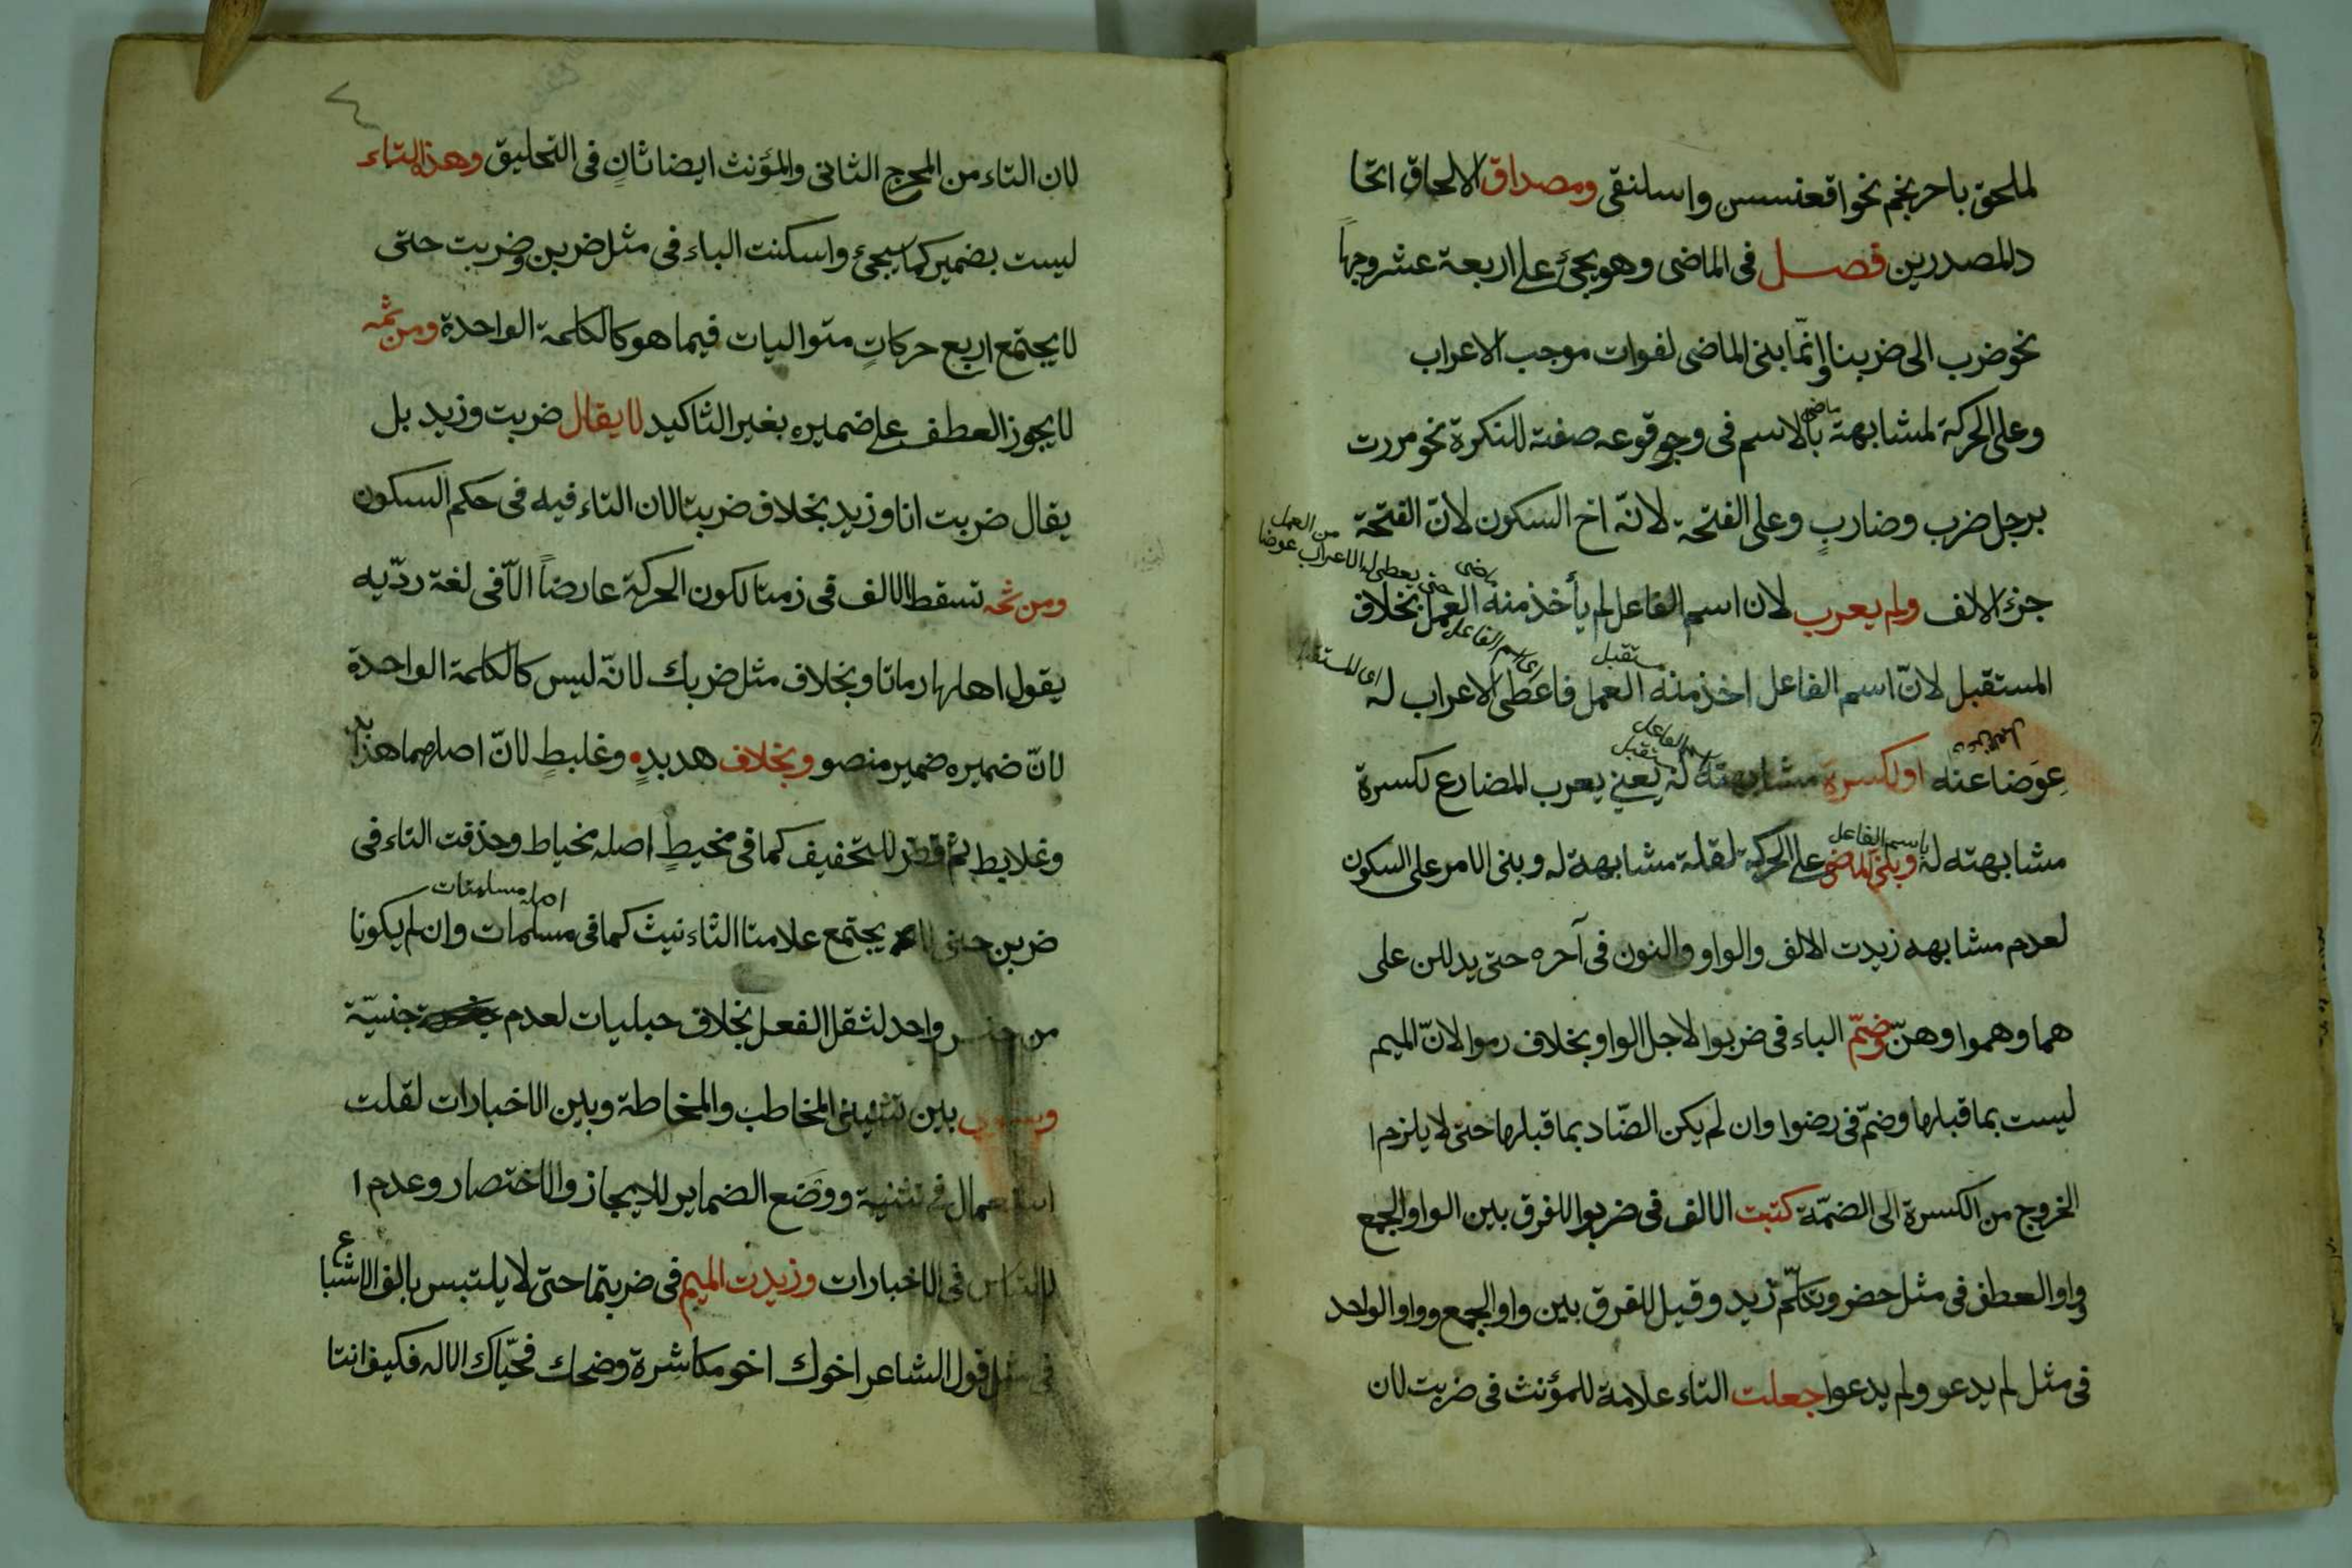 لملحق باحرنجم نحو اقعنسس واسلنقى ومصداق الالحاق اتحا
دالمصدرين فصل فى الماضى وهو يجئ على اربعة عشر وجهاً
نحو ضرب الى ضربنا وانّما بنى الماضى لفوات موجب الاعراب
وعلى الحركة لمشابهته بالاسم فى وجو قوعه صفة للنكرة نحو مررت
ماضى
برجل ضرب وضاربٍ وعلى الفتحة لانّه اخ السكون لانّ الفتحة
جزء الالف ولم يعرب لان اسم الفاعل لم يأخذ منه العمل بخلاف
ماضى
حتى يعطى له الاعراب عوضا
من العمل
المستقبل لانّ اسم الفاعل اخذ منه العمل فاعطى الاعراب له
اى اسم الفاعل
مستقبل
عوضا عنه او لكسرة مشابهته له يعنى يعرب المضارع لكسرة
اسم الفاعل
مشابهته له وبنى الماضى على الحركة لقلة مشابهة له وبنى الامر على السكون
باسم الفاعل
لعدم مشابهه زيدت الالف والواو والنون فى آخره حتى يدللن على
هما وهموا وهنّ وضمّ الباء فى ضربوا لاجل الواو بخلاف رموا لانّ الميم
ليست بما قبلها وضمّ فى رضوا وان لم يكن الضّاد بما قبلها حتى لا يلزم ا
الخروج من الكسرة الى الضمّة كتبت الالف فى ضربوا للفرق بين الواو الجمع
وواو العطف فى مثل حضر وتكلّم زيد وقيل للفرق بين واو الجمع وواو الواحد
فى مثل لم يدعو ولم يدعوا جعلت التاء علامة للمؤنث فى ضربت لان
لان التاء من المخرج الثانى والمؤنث ايضا ثانٍ فى التخليق وهذا التاء
ليست بضمير كما سيجئ واسكنت الباء فى مثل ضربن وضربت حتى
لا يجتمع اربع حركاتٍ متواليات فيما هو كالكلمة الواحدة ومن ثمه
لا يجوز العطف على ضميره بغير التاكيد لا يقال ضربت وزيد بل
يقال ضربت انا وزيد بخلاف ضربتا لان التاء فيه فى حكم السكون
ومن ثمه تسقط الالف فى رمتا لكون الحركة عارضاً الّا فى لغة ردّيه
يقول اهلها رماتا وبخلاف مثل ضربك لانّه ليس كالكلمة الواحدة
لانّ ضميره ضمير منصو وبخلاف هدبدٍ وعلبطٍ لانّ اصلهما هدابد
وعلابط ثم قصر للتخفيف كما فى مخيطٍ اصله مخياط وحذفت التاء فى
ضربن حتى لا يجتمع علامتا التاءنيث كما فى مسلمات وان لم يكونا
اصله مسلمتات
من جنس واحد لثقل الفعل بخلاف حبليات لعدم جنسيّة
وسوى بين تثنيتى المخاطب والمخاطة وبين الاخبارات لقلت
استعمال فى تثنية ووضع الضماير للايجاز والاختصار وعدم ا
لالتباس فى الاخبارات وزيدت الميم فى ضربتما حتى لا يلتبس بالف الاشبا
ع
فى مثل قول الشاعر اخوك اخو مكاشرة وضحك فحيّاك الاله فكيف انتا